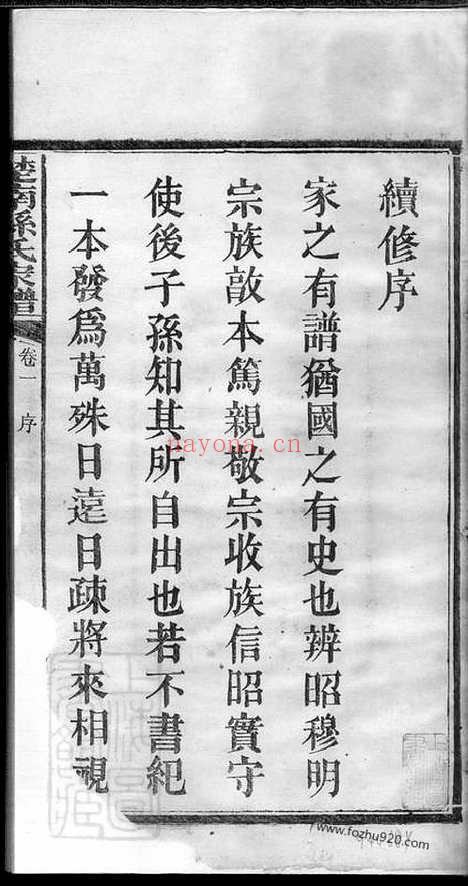 續修序
家之有譜猶國之有史也辨昭穆明
宗族敦本篤親敬宗收族信昭實守
使後子孫知其所自出也若不書紀
一本發爲萬殊日遠日疎將來相視
楚南孫氏家譜
卷一
序
nayona.cn
www.fozhu920.com